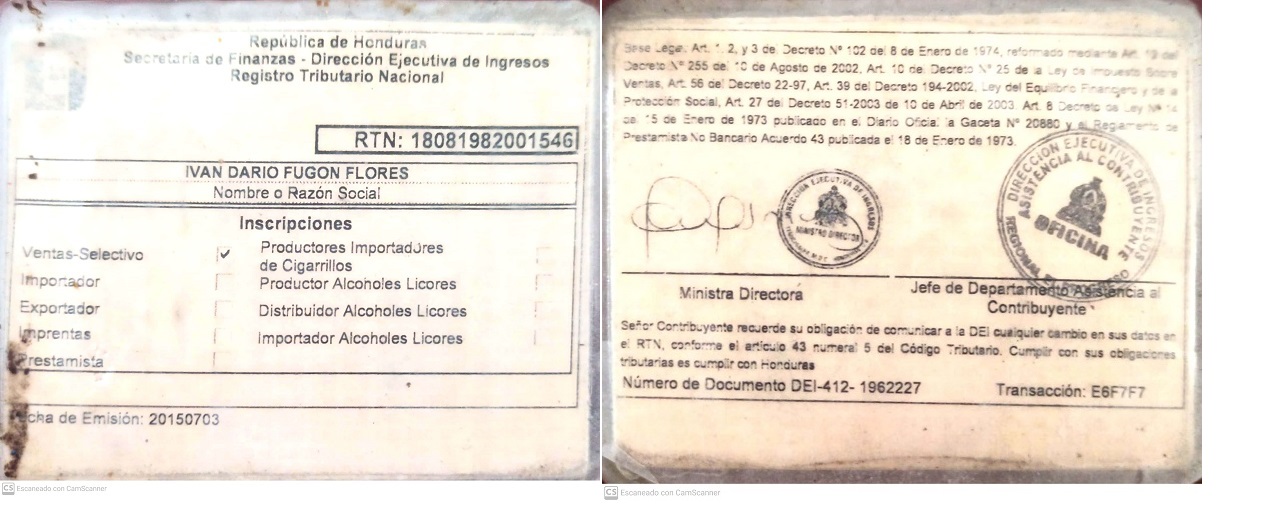 República de Honduras
Secretaria de Finanzas - Dirección Ejecutiva de Ingresos
Registro Tributario Nacional
RTN: 18081982001546
IVAN DARIO FUGON FLORES
Nombre o Razón Social
Inscripciones
Ventas-Selectivo ✔ Productores Importadores
de Cigarrillos
Importador Productor Alcoholes Licores
Exportador Distribuidor Alcoholes Licores
Imprentas Importador Alcoholes Licores
Prestamista
Fecha de Emisión: 20150703
CS Escaneado con CamScanner
Base Legal. Art. 1, 2, y 3 del Decreto Nº 102 del 8 de Enero de 1974, reformado mediante Art. del
Decreto Nº 255 del 10 de Agosto de 2002, Art. 10 del Decreto Nº 25 de la Ley de Impuesto Sobre
Ventas, Art. 56 del Decreto 22-97, Art. 39 del Decreto 194-2002, Ley del Equilibrio Financiero y de la
Protección Social, Art. 27 del Decreto 51-2003 de 10 de Abril de 2003. Art. 8 Decreto de Ley Nº 14
de 15 de Enero de 1973 publicado en el Diario Oficial la Gaceta Nº 20880 y el Reglamento de
Prestamista No Bancario Acuerdo 43 publicada el 18 de Enero de 1973.
DIRECCIÓN EJECUTIVA DE INGRESOS
MINISTRO DIRECTOR
DIRECCIÓN EJECUTIVA DE INGRESOS
ASISTENCIA AL CONTRIBUYENTE
OFICINA
REGIONAL
Ministra Directora
Jefe de Departamento Asistencia al
Contribuyente
Señor Contribuyente recuerde su obligación de comunicar a la DEI cualquier cambio en sus datos en
el RTN, conforme el artículo 43 numeral 5 del Código Tributario. Cumplir con sus obligaciones
tributarias es cumplir con Honduras
Número de Documento DEI-412- 1962227 Transacción: E6F7F7
CS Escaneado con CamScanner